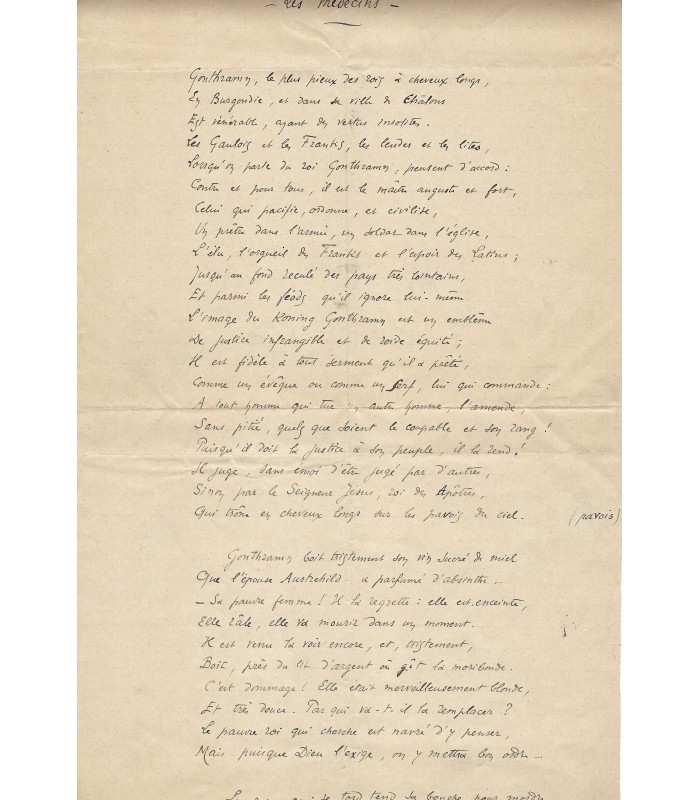 - Les Médecins -
Gonthramn, le plus pieux des rois à cheveux longs,
En Burgondie, et dans sa ville de Châlons
Est vénérable, ayant des vertus insolites.
Les Gaulois et les Franks, les leudes et les lites,
Lorsqu'on parle du roi Gonthramn, pensent d'accord :
Contre et pour tous, il est le maître auguste et fort,
Celui qui pacifie, ordonne, et civilise,
Un prêtre dans l'armée, un soldat dans l'église,
L'élu, l'orgueil des Franks et l'espoir des Latins ;
Jusqu'au fond reculé des pays très lointains,
Et parmi les féods qu'il ignore lui-même
L'image du Koning Gonthramn est un emblème
De justice infrangible et de roide équité ;
Il est fidèle à tout serment qu'il a prêté,
Comme un évêque ou comme un serf, lui qui commande :
A tout homme qui tue un autre homme, l'amende,
Sans pitié, quels que soient le coupable et son rang !
Puisqu'il doit la justice à son peuple, il la rend !
Il juge, sans émoi d'être jugé par d'autres,
Sinon par le Seigneur Jésus, roi des Apôtres,
Qui trône en cheveux longs sur les pavois du ciel. (pavois)
Gonthramn boit tristement son vin sucré de miel
Que l'épouse Austrehild a parfumé d'absinthe _
_ Sa pauvre femme ! Il la regrette : elle est enceinte,
Elle râle, elle va mourir dans un moment.
Il est venu la voir encore, et, tristement,
Boit, près du lit d'argent où gît la moribonde.
C'est dommage ! Elle était merveilleusement blonde,
Et très douce. Par qui va-t-il la remplacer ?
Le pauvre roi qui cherche est navré d'y penser,
Mais puisque Dieu l'exige, on y mettra bon ordre _
qui se tord tend sa bouche pour mordre